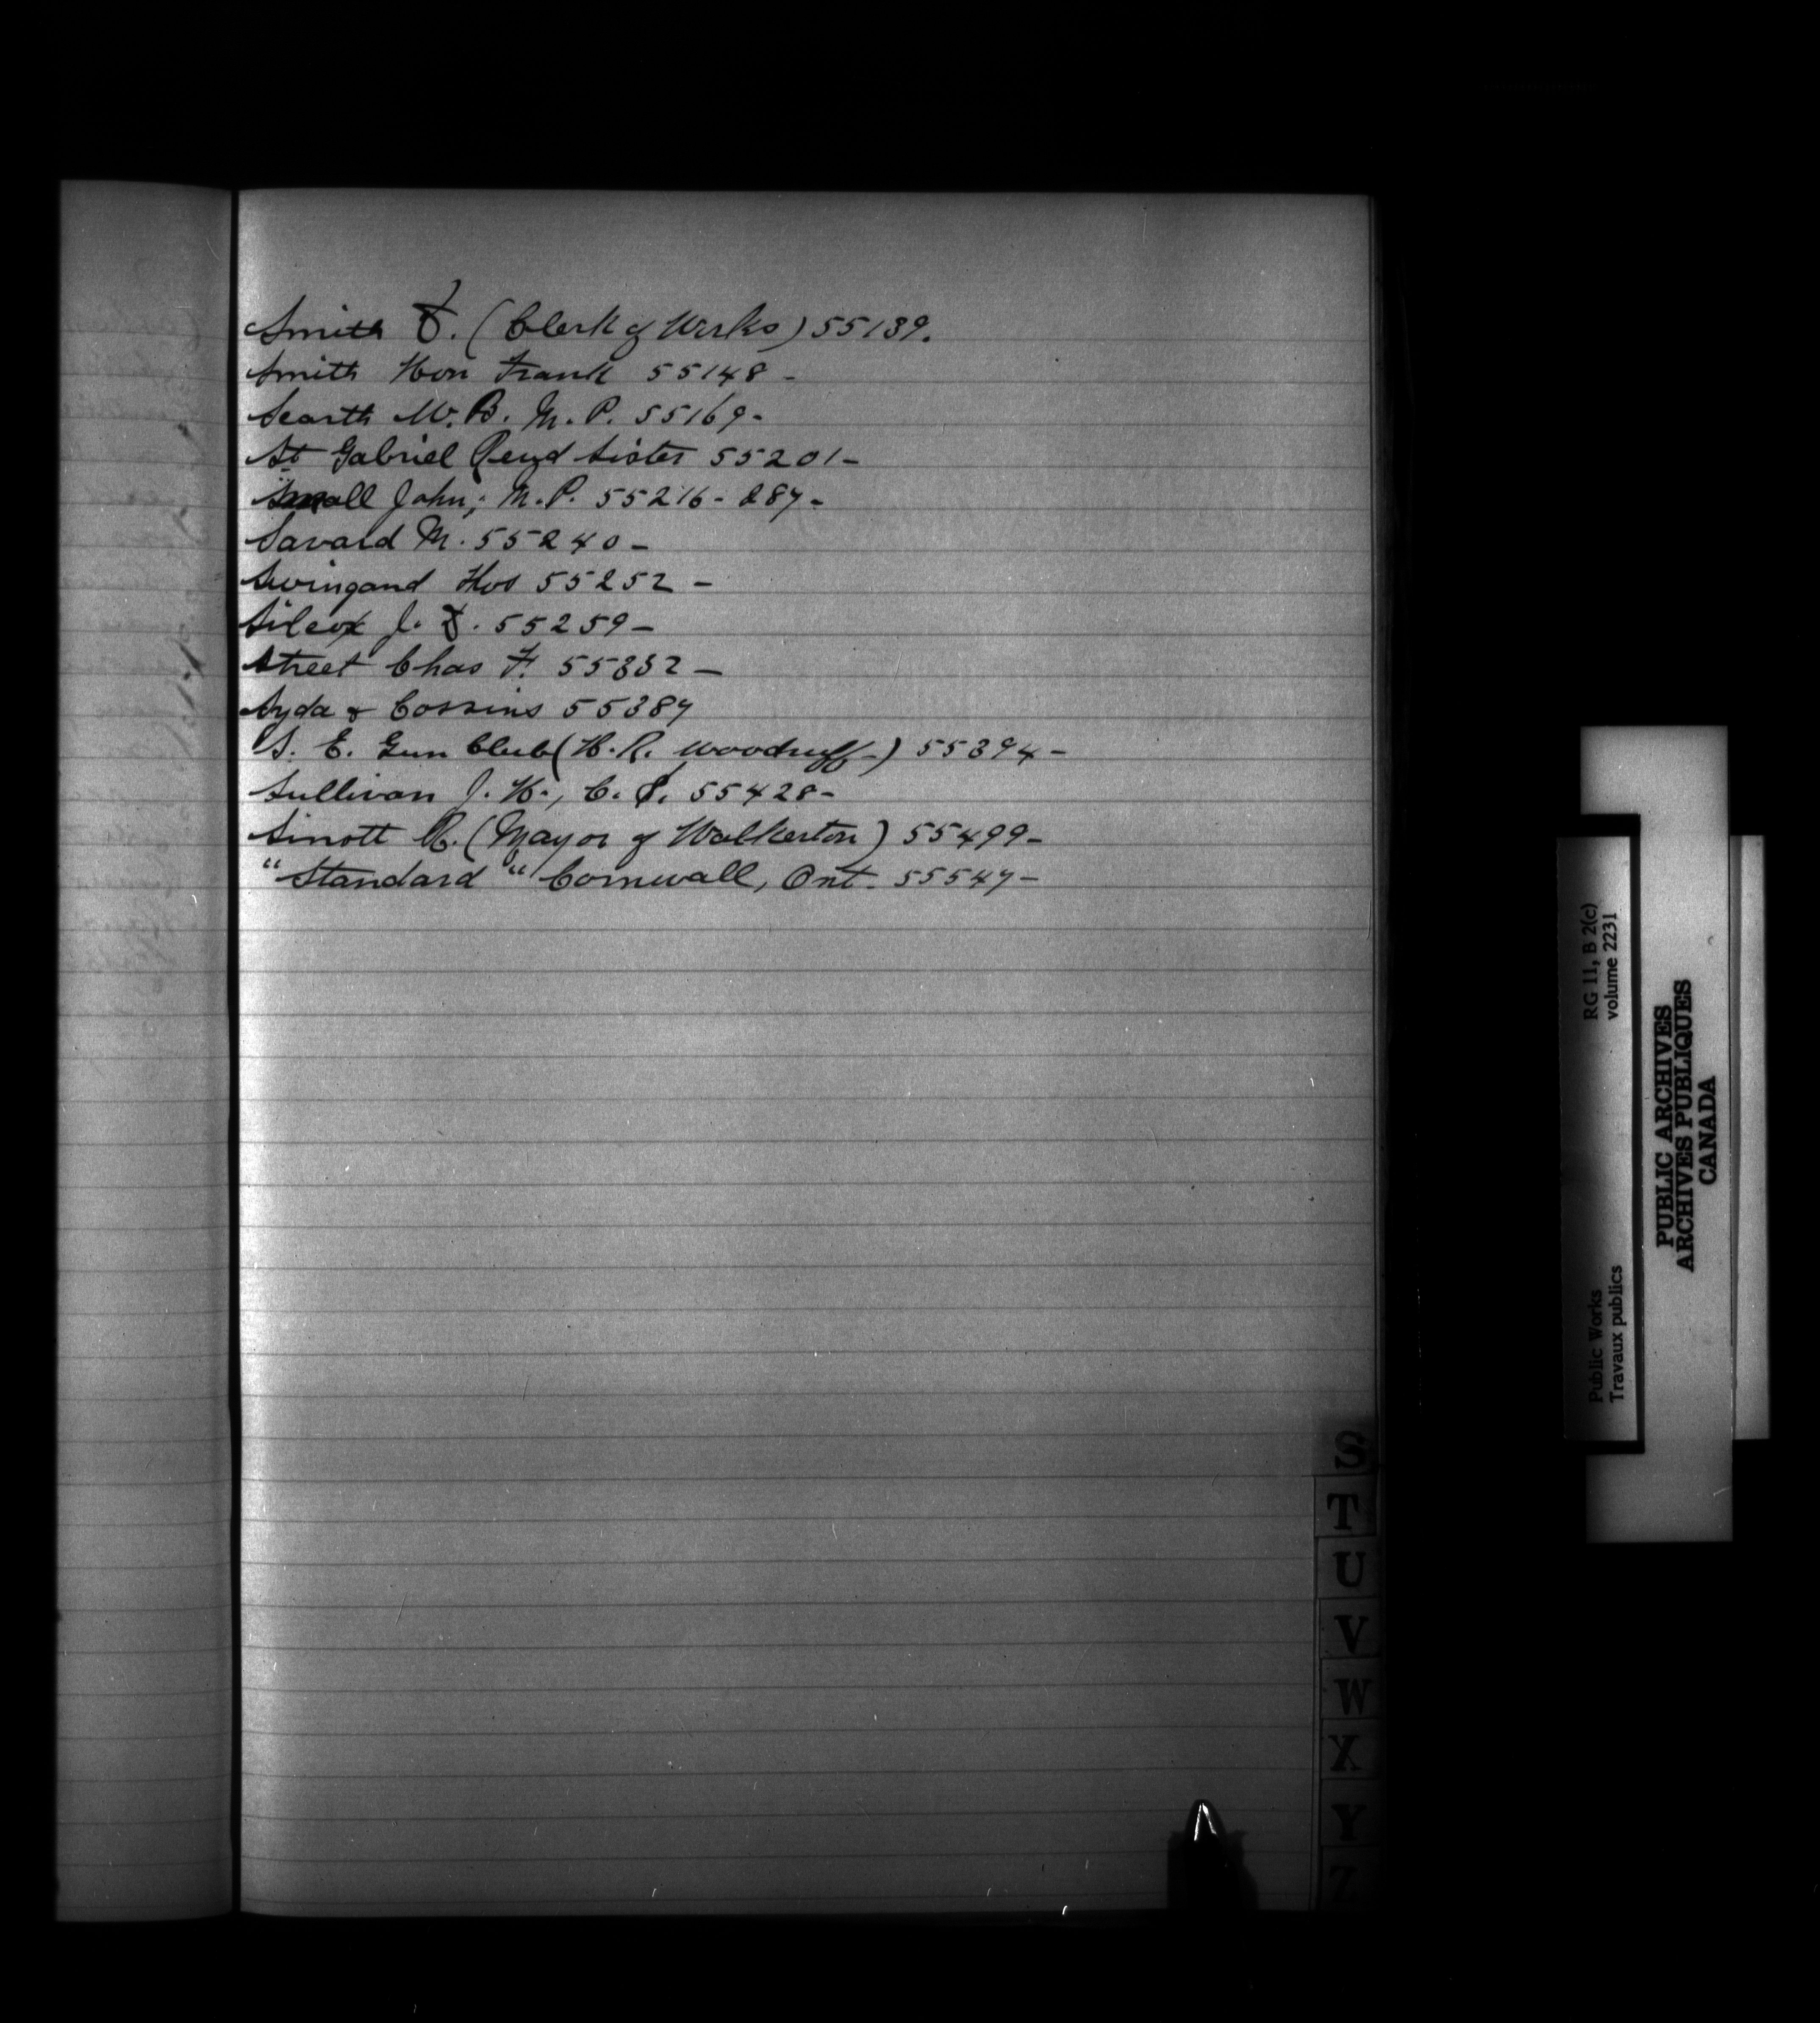 Smith J. (Clerk of Works) 55139.
Smith Hon Frank 55148 -
Scarth W. B. M. P. 55169 -
St Gabriel Revd Sister 55201 -
Small John, M. P. 55216 - 287 -
Savard M. 55240 -
Swingand Hos 55252 -
Silcox J. 55259 -
Street Chas F. 55332 -
Syda & Cossins 55387
S. E. Gun Club (H. R. Woodruff -) 55394 -
Sullivan J. H., C. 55428 -
Sinott R. (Mayor of Walkerton) 55499 -
"Standard" Cornwall, Ont. 55547 -
S
T
U
V
W
X
Y
Z
RG 11, B 2(c)
volume 2231
Public Works
Travaux publics
PUBLIC ARCHIVES
ARCHIVES PUBLIQUES
CANADA